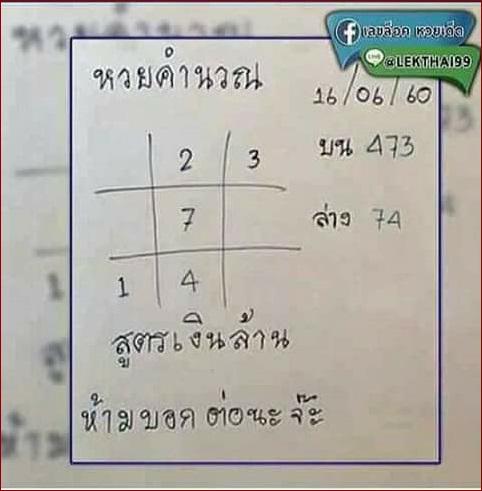 เลขล็อก หวยเด็ด
LINE @LEKTHAI99
หวยคำนวณ
16/06/60
2 3
บน 473
7
ล่าง 74
1 4
สูตรเงินล้าน
ห้ามบอกต่อนะจ๊ะ